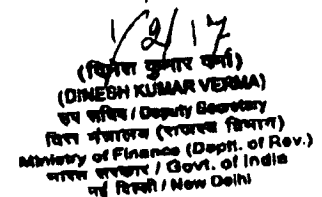 1/2/17
(दिनेश कुमार वर्मा)
(DINESH KUMAR VERMA)
उप सचिव / Deputy Secretary
वित्त मंत्रालय (राजस्व विभाग)
Ministry of Finance (Deptt. of Rev.)
भारत सरकार / Govt. of India
नई दिल्ली / New Delhi